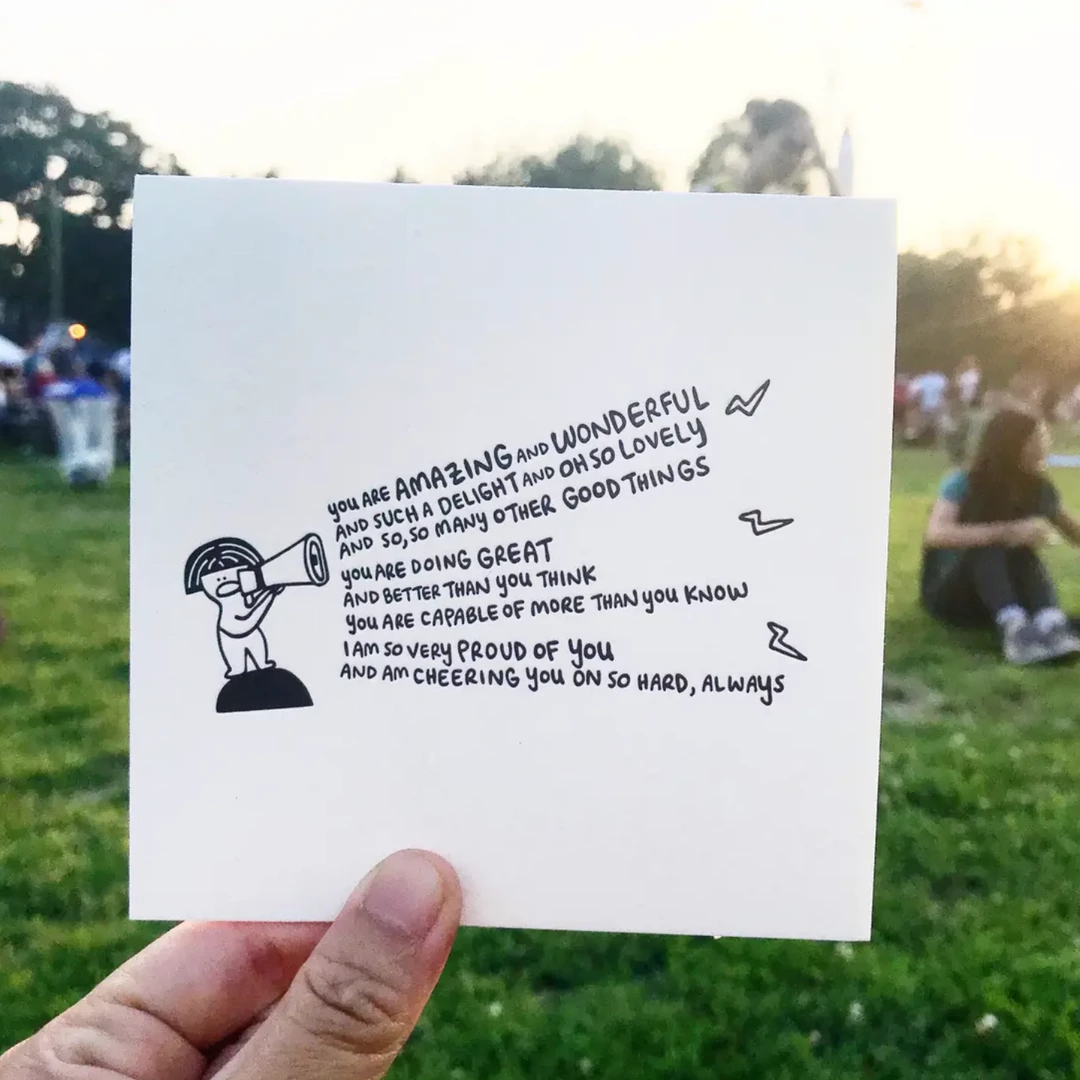 you ARE AMAZING AND WONDERFUL
AND SUCH A DELIGHT AND OH SO LOVELY
AND SO, SO MANY OTHER GOOD THINGS
you ARE DOING GREAT
AND BETTER THAN you THINK
you ARE CAPABLE OF MORE THAN you KNOW
I AM SO VERY PROUD OF you
AND AM CHEERING you ON SO HARD, ALWAYS